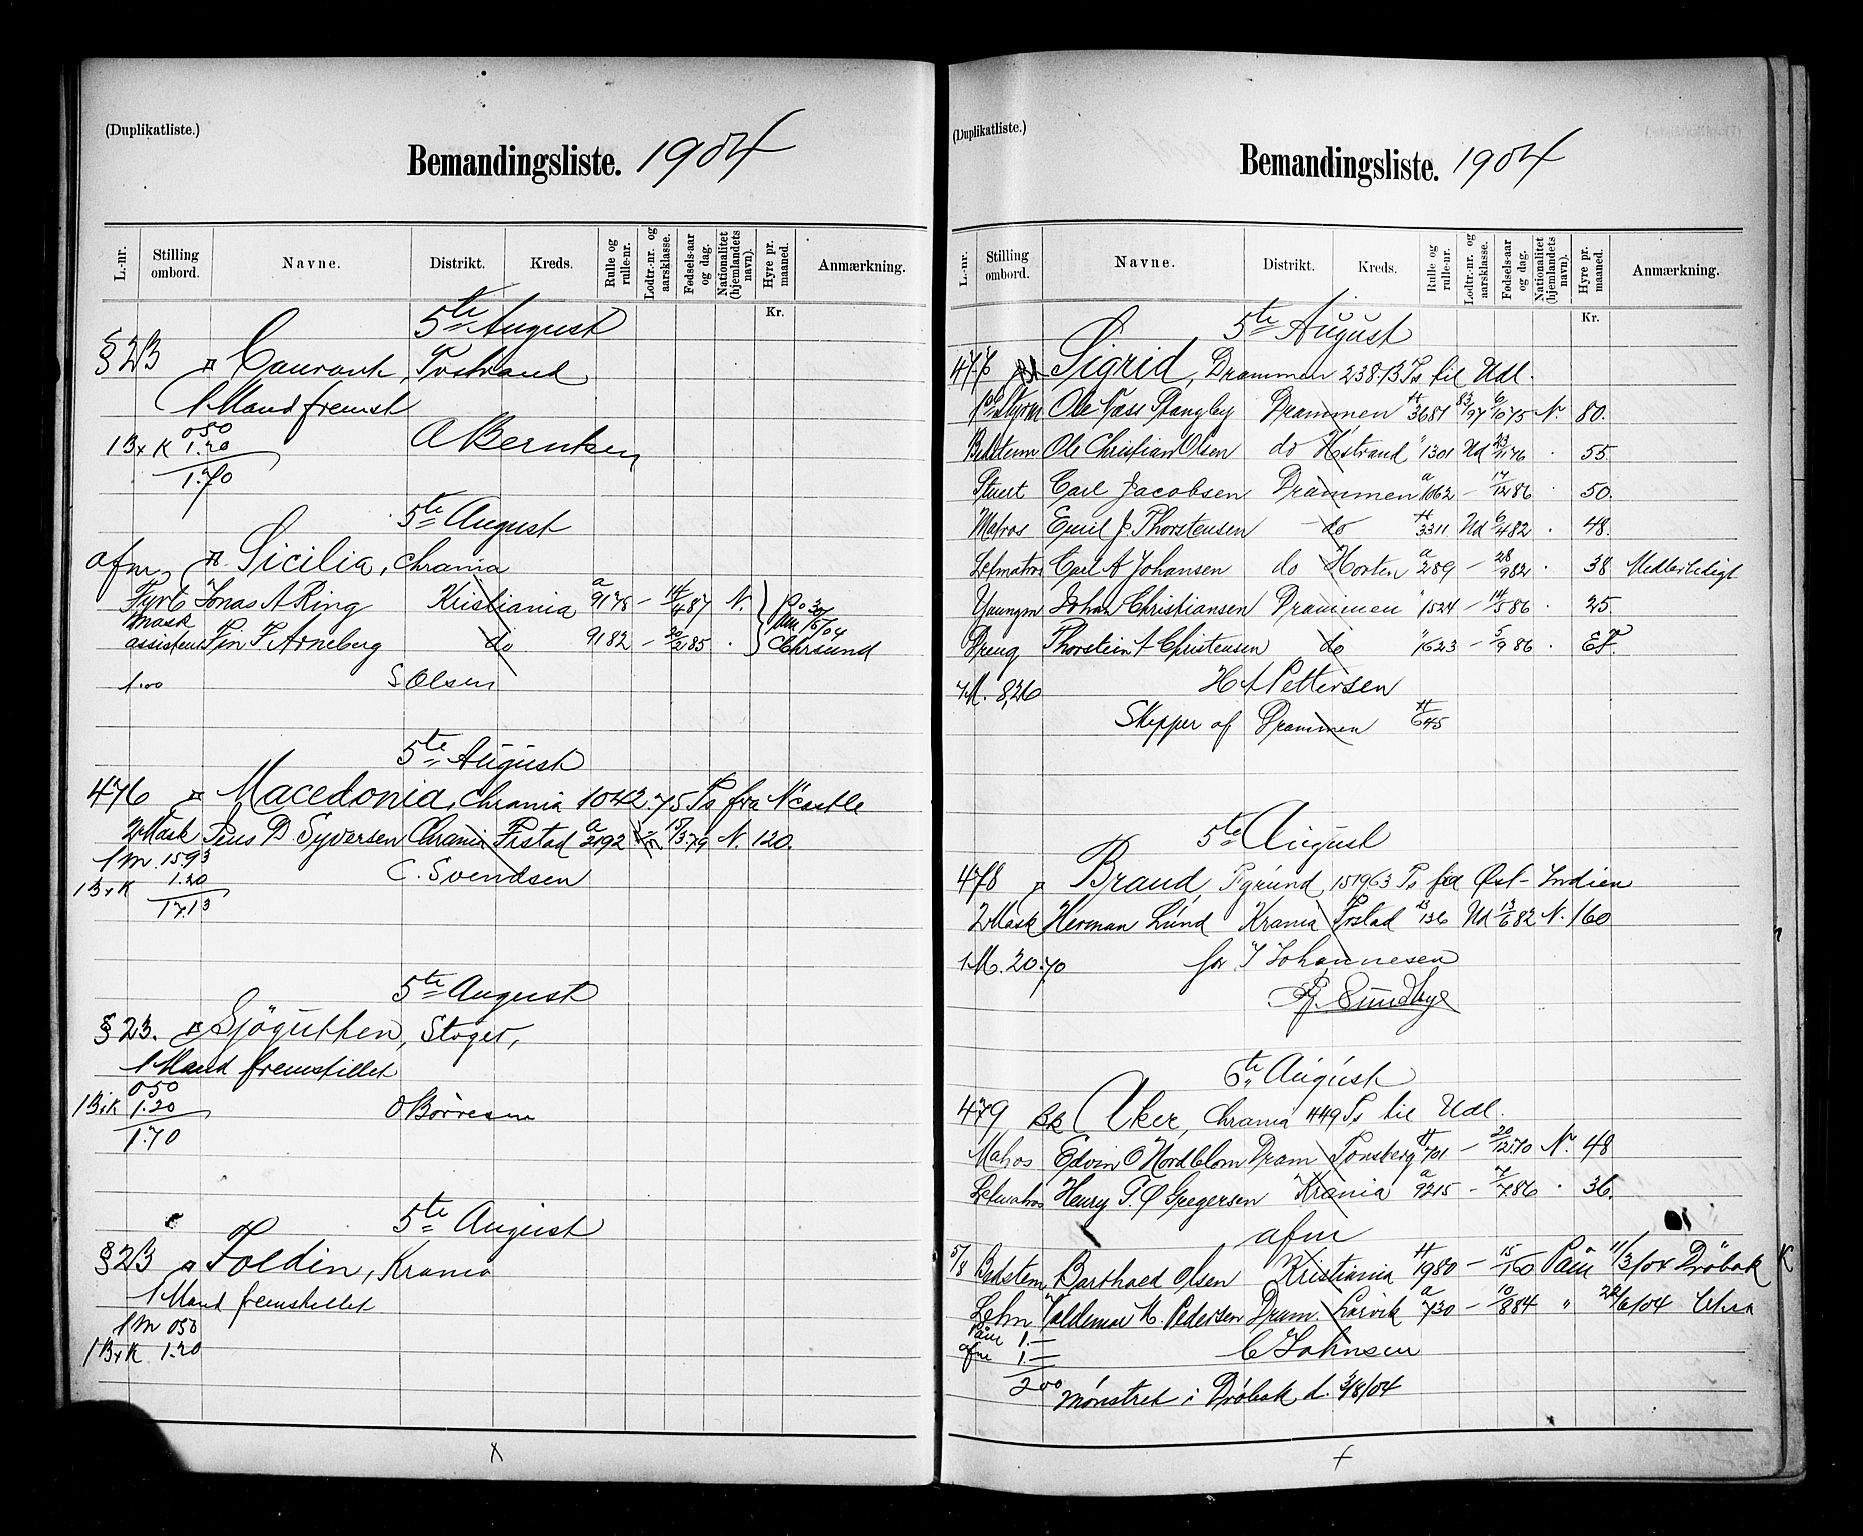 (Duplikatliste.)
Bemandingsliste. 1904
L.-nr. Stilling ombord. Navne. Distrikt. Kreds. Rulle og rulle-nr. Lodtr.-nr. og aarsklasse. Fødsels-aar og dag. Nationalitet (hjemlandets navn). Hyre pr. maaned. Anmærkning.
Kr.
5te August
§ 23
1 Mand fremst
050
1 B x K 1.20
1.70
5te August
afm. Sicilia, Chrania
Fyrb Jonas A Ring Kristiania a 9178 – 14/4 87 N.
Mask
assistent Fin F. Arneberg do 9182 – 20/2 85 . Chrsund
1.00 S. Olsen
5te August
476 Macedonia, Chrania 1042.75 Ts fra N'castle
2 Mask Jens D. Syversen Chrania Frstad a 2192 N. 120.
1 M 15.93 C. Svendsen
1 B x K 1.20
17.13
5te August
§ 23. Sjögutten,
1 Mand fremstillet
050
1 B x K 1.20 O Börresen
1.70
5te August
§ 23 Foldin, Krania
1 Mand fremstillet
1 M 050
1 B x K 1.20
x
(Duplikatliste.)
Bemandingsliste. 1904
L.-nr. Stilling ombord. Navne. Distrikt. Kreds. Rulle og rulle-nr. Lodtr.-nr. og aarsklasse. Fødsels-aar og dag. Nationalitet (hjemlandets navn). Hyre pr. maaned. Anmærkning.
Kr.
5te August
477 Sigrid, Drammen 238.13 Ts til Udl.
Styrm Ole Næss Stangby Drammen 3681 83/97 6/10 75 N. 80.
Bedstem Ole Christian Olsen do Hstrand " 1301 Ud 23/11 76 . 55
Stuert Carl Jacobsen Drammen a 1062 – 17/12 86 . 50.
Matros Emil J. Thorstensen do 3311 Ud 6/4 82 . 48.
Letmatros Carl A Johansen do Horten a 289 – 28/9 82 . 38
Youngm Johan Christiansen Drammen " 1524 – 14/5 86 . 25.
Dreng Thorstein A Christensen do " 1623 – 5/9 86 .
7 M. 8,26 H A Pettersen
Skipper af Drammen 645
5te August
478 Brand, Pgrund, 1519,63 Ts fra Ost-Indien
2 Mask Herman Lund Krania Frstad 136 Ud 13/6 82 N. 160
1 M. 20.70 for J Johannesen
Sundbye
6te August
479 Bk Aker, Chrania 449 Ts til Udl.
Matros Edvin O Nordblom Dram Tønsberg 701 – 20/12 70 N. 48
Letmatros Henry T. O Gregersen Krania a 9215 – 7/7 86 . 36.
afm
5/8 Bedstem Barthold Olsen Kristiania 1980 – 15/1 60 Påm 11/3/04 Dröbak
Letm Valdemar M. Pedersen Dram. Larvik a 730 – 10/8 84 " /6/04 Chra
Påm 1.–
afm 1.– C Johnsen
2 00 Mönstret i Dröbak d. 3/8/04